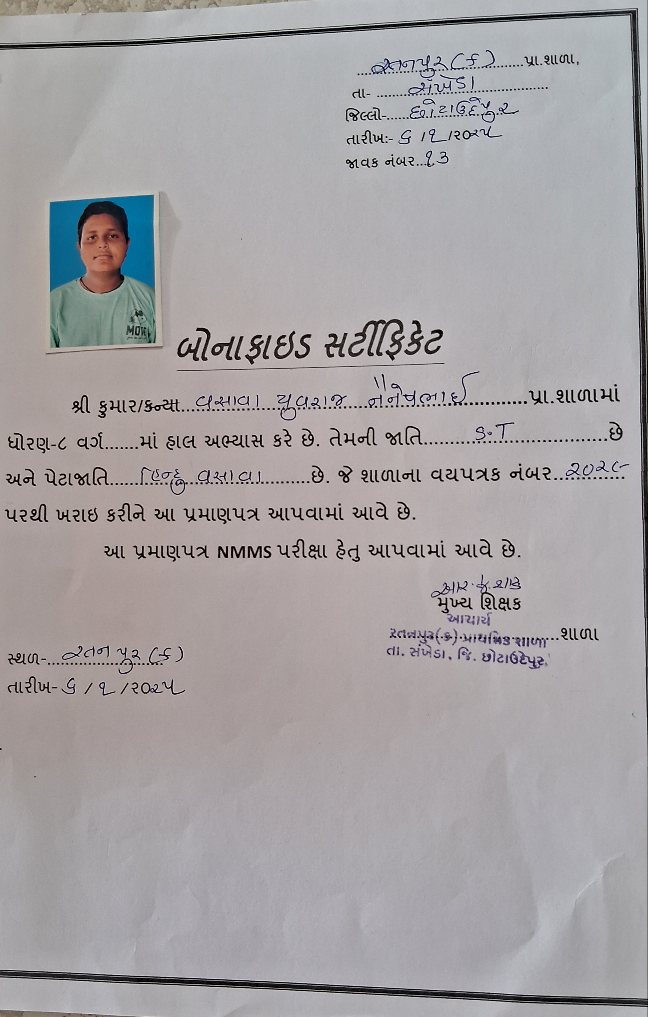 રતનપુર(ક) પ્રા.શાળા,
તા- સંખેડા
જિલ્લો- છોટાઉદેપુર
તારીખ:- ૬/૧/૨૦૨૫
જાવક નંબર...૧૩
MOR
બોનાફાઇડ સર્ટીફિકેટ
શ્રી કુમાર/કન્યા વસાવા યુવરાજ પ્રા.શાળામાં
ધોરણ-૮ વર્ગ.......માં હાલ અભ્યાસ કરે છે. તેમની જાતિ S.T છે
અને પેટાજાતિ હિન્દુ વસાવા છે. જે શાળાના વયપત્રક નંબર ૨૦૨૯
પરથી ખરાઇ કરીને આ પ્રમાણપત્ર આપવામાં આવે છે.
આ પ્રમાણપત્ર NMMS પરીક્ષા હેતુ આપવામાં આવે છે.
મુખ્ય શિક્ષક
આચાર્ય
રતનપુર(ક) પ્રાથમિક શાળા શાળા
તા. સંખેડા, જિ. છોટાઉદેપુર
સ્થળ- રતનપુર(ક)
તારીખ- ૬/૧/૨૦૨૫